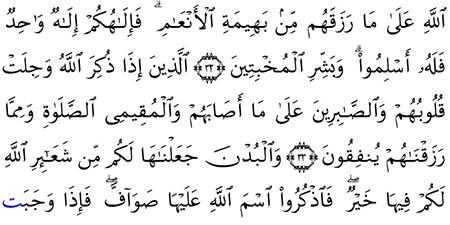 ٱللَّهِ عَلَىٰ مَا رَزَقَهُم مِّنۢ بَهِيمَةِ ٱلْأَنْعَـٰمِ ۗ فَإِلَـٰهُكُمْ إِلَـٰهٌ وَٰحِدٌ
فَلَهُۥٓ أَسْلِمُوا۟ ۗ وَبَشِّرِ ٱلْمُخْبِتِينَ ﴿٣٤﴾ ٱلَّذِينَ إِذَا ذُكِرَ ٱللَّهُ وَجِلَتْ
قُلُوبُهُمْ وَٱلصَّـٰبِرِينَ عَلَىٰ مَآ أَصَابَهُمْ وَٱلْمُقِيمِى ٱلصَّلَوٰةِ وَمِمَّا
رَزَقْنَـٰهُمْ يُنفِقُونَ ﴿٣٥﴾ وَٱلْبُدْنَ جَعَلْنَـٰهَا لَكُم مِّن شَعَـٰٓئِرِ ٱللَّهِ
لَكُمْ فِيهَا خَيْرٌ ۖ فَٱذْكُرُوا۟ ٱسْمَ ٱللَّهِ عَلَيْهَا صَوَآفَّ ۖ فَإِذَا وَجَبَتْ